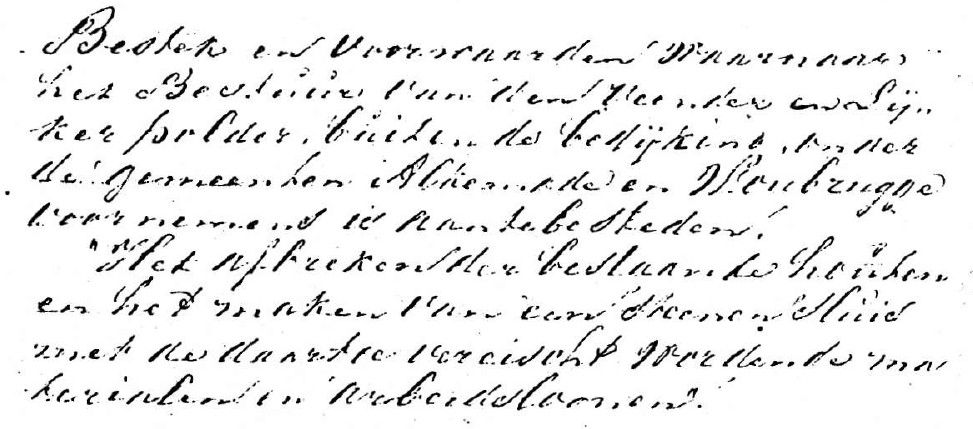 Bestek en Voorwaarden Waarnaar
het Bestuur van den Veender en Lijn
ker polder, buiten de bedijking onder
de gemeenten Alkemade en Woubrugge
voornemens is aantebesteden.
"Het afbreken der bestaande houten
en het maken van een Steenen Sluis
met de daartoe vereischt Wordende ma
terialen en arbeidsloonen".